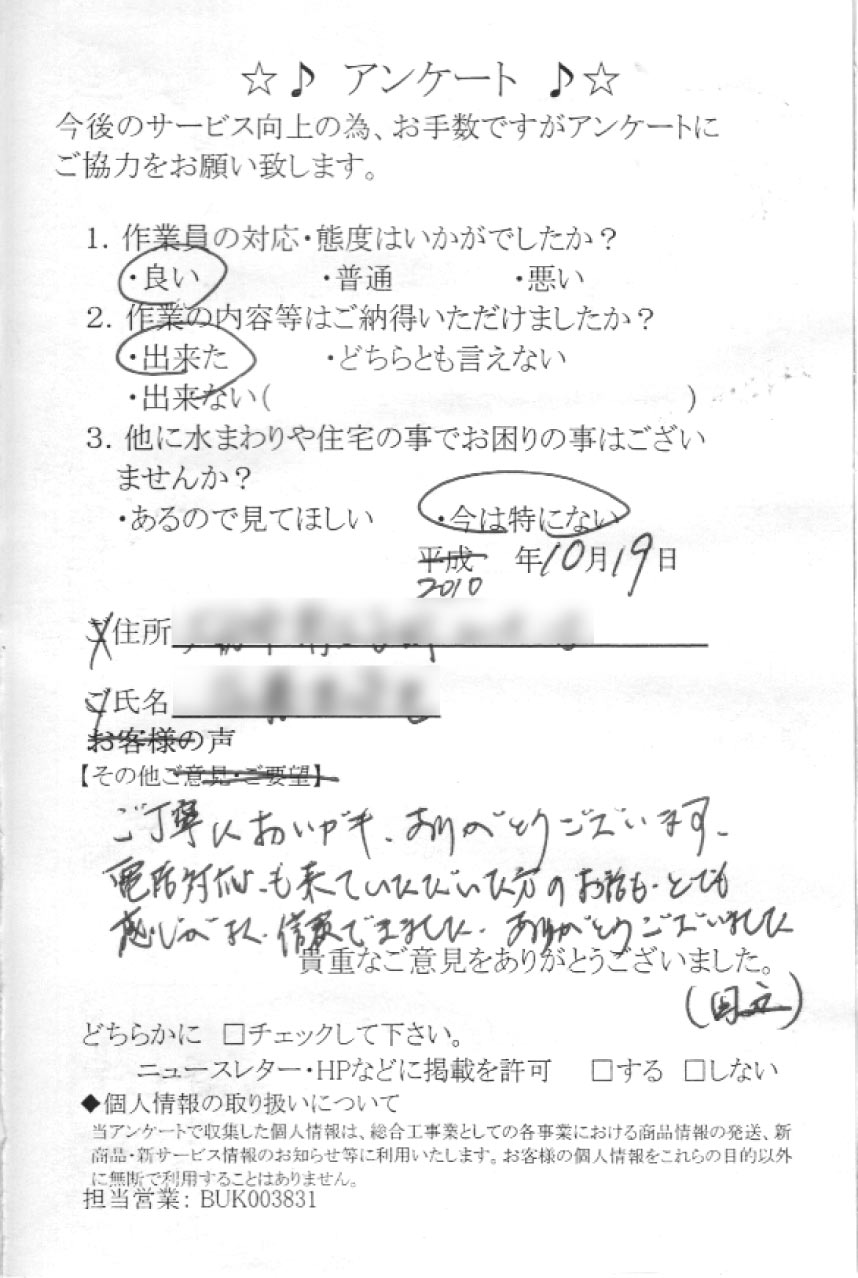 ☆♪ アンケート ♪☆
今後のサービス向上の為、お手数ですがアンケートに
ご協力をお願い致します。
1. 作業員の対応・態度はいかがでしたか?
・良い ・普通 ・悪い
2. 作業の内容等はご納得いただけましたか?
・出来た ・どちらとも言えない
・出来ない( )
3. 他に水まわりや住宅の事でお困りの事はござい
ませんか?
・あるので見てほしい ・今は特にない
平成 年10月19日
2010
ご住所
ご氏名
お客様の声
【その他ご意見・ご要望】
ご丁寧におハガキ、ありがとうございます。
電話対応も来ていただいた方のお話も、とても
感じがよく、信頼できました。ありがとうございました
貴重なご意見をありがとうございました。
(国立)
どちらかに □チェックして下さい。
ニュースレター・HPなどに掲載を許可 □する □しない
◆個人情報の取り扱いについて
当アンケートで収集した個人情報は、総合工事業としての各事業における商品情報の発送、新
商品・新サービス情報のお知らせ等に利用いたします。お客様の個人情報をこれらの目的以外
に無断で利用することはありません。
担当営業: BUK003831